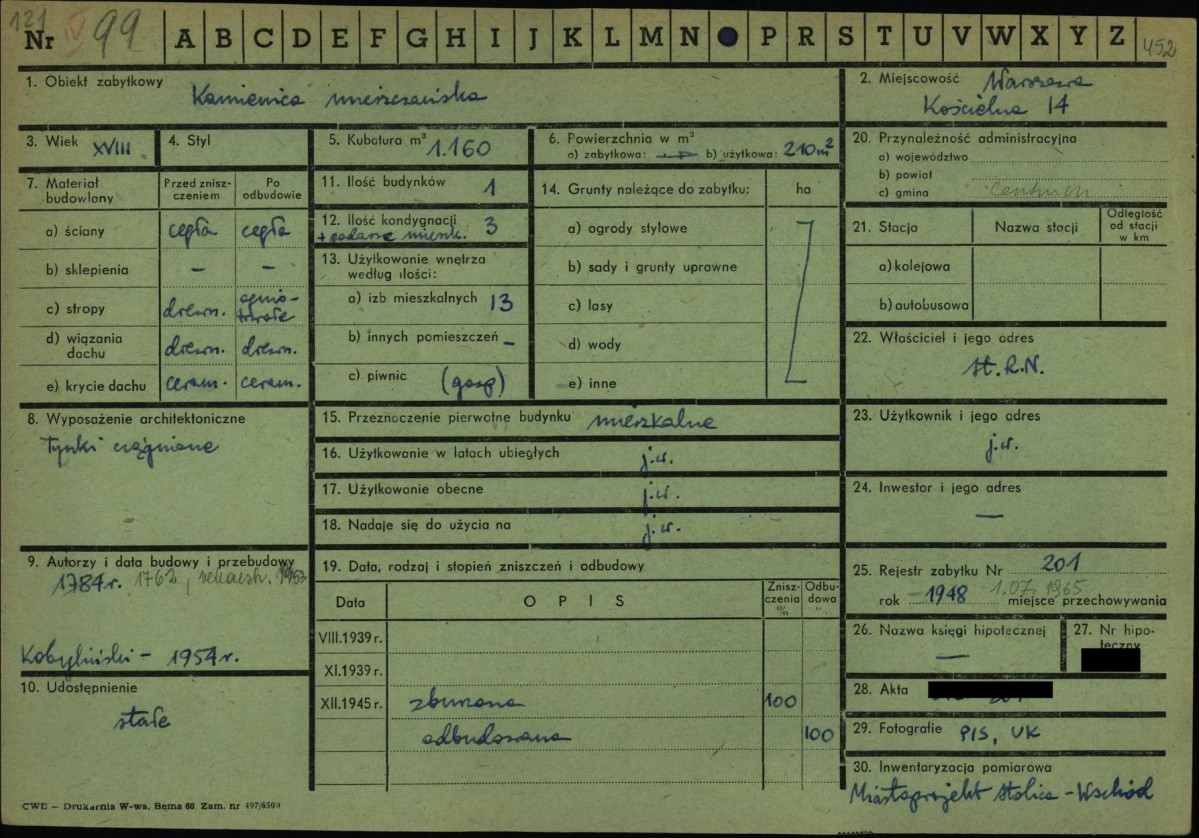 121
Nr IV 99 A B C D E F G H I J K L M N P R S T U V W X Y Z 452
1. Obiekt zabytkowy Kamienica mieszczańska
2. Miejscowość Warszawa
Kościelna 14
3. Wiek XVIII
4. Styl
5. Kubatura m³ 1.160
6. Powierzchnia w m³
a) zabytkowa: — b) użytkowa: 210 m²
20. Przynależność administracyjna
a) województwo
b) powiat
c) gmina Centrum
7. Materiał budowlany
Przed zniszczeniem
Po odbudowie
a) ściany cegła cegła
b) sklepienia – –
c) stropy drewn. ognio-trwałe
d) wiązania dachu drewn. drewn.
e) krycie dachu ceram. ceram.
11. Ilość budynków 1
12. Ilość kondygnacji 3
+ poddasze mieszk.
13. Użytkowanie wnętrza
według ilości:
a) izb mieszkalnych 13
b) innych pomieszczeń –
c) piwnic (gosp)
14. Grunty należące do zabytku: ha
a) ogrody stylowe
b) sady i grunty uprawne
c) lasy
d) wody
e) inne
21. Stacja Nazwa stacji Odległość od stacji w km
a) kolejowa
b) autobusowa
22. Właściciel i jego adres
St.R.N.
8. Wyposażenie architektoniczne
Tynki ciągnione
15. Przeznaczenie pierwotne budynku mieszkalne
16. Użytkowanie w latach ubiegłych j.w.
17. Użytkowanie obecne j.w.
18. Nadaje się do użycia na j.w.
23. Użytkownik i jego adres
j.w.
24. Inwestor i jego adres
—
9. Autorzy i data budowy i przebudowy
1784 r. 1762, rekonstr. 1953
Kobyliński – 1954 r.
10. Udostępnienie
stałe
19. Data, rodzaj i stopień zniszczeń i odbudowy
Data OPIS Zniszczenia % Odbudowa %
VIII.1939 r.
XI.1939 r.
XII.1945 r. zburzona 100
odbudowana 100
25. Rejestr zabytku Nr 201
1.07.1965
rok 1948 miejsce przechowywania
26. Nazwa księgi hipotecznej
—
27. Nr hipoteczny
28. Akta
29. Fotografie PIS, UK
30. Inwentaryzacja pomiarowa
Miastoprojekt Stolica – Wschód
CWD — Drukarnia W-wa, Bema 60 Zam. nr 497/6503